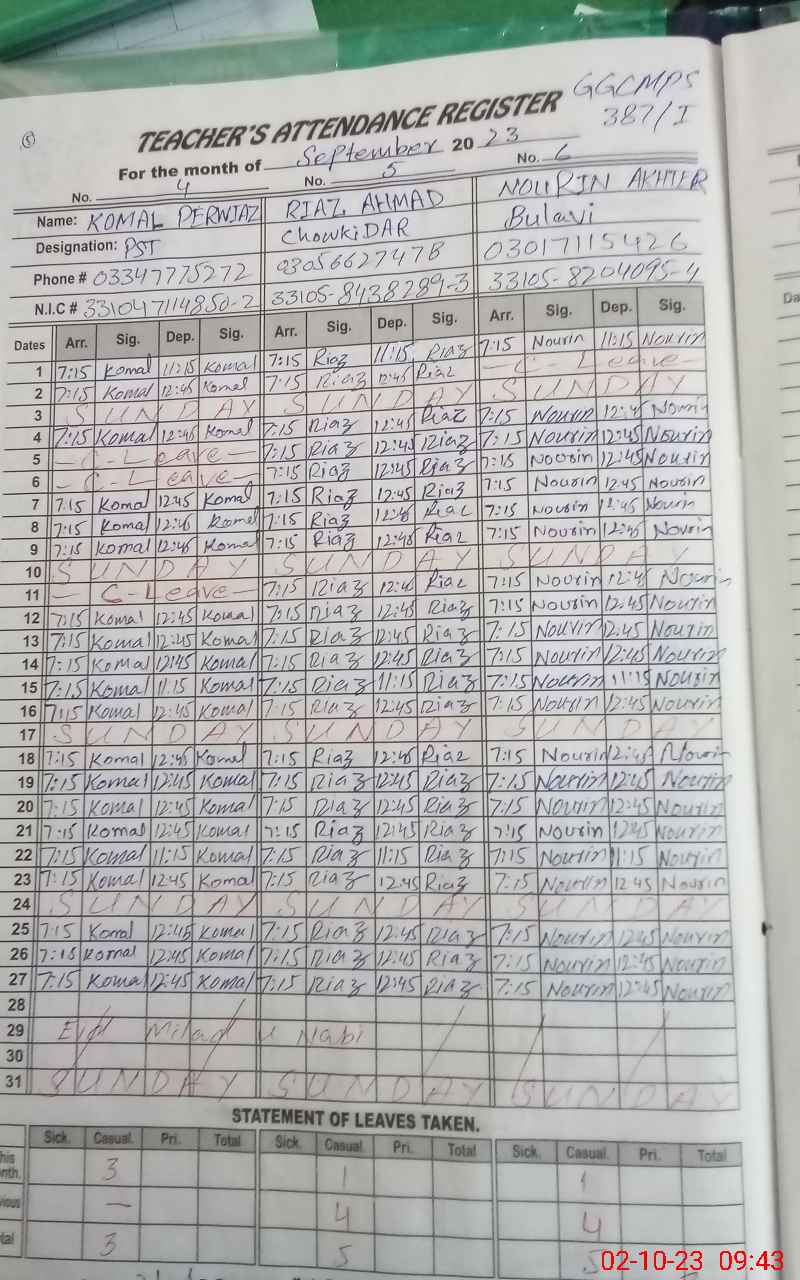 GGCMPS
387/I
5
TEACHER'S ATTENDANCE REGISTER
For the month of September 2023
No. 4 No. 5 No. 6
Name: KOMAL PERWIAZ RIAZ AHMAD NOURIN AKHTER
Designation: PST ChowkiDAR Bulavi
Phone # 03347775272 03056627478 03017115426
N.I.C # 331047114850-2 33105-8438289-3 33105-8204095-4
Dates Arr. Sig. Dep. Sig. Arr. Sig. Dep. Sig. Arr. Sig. Dep. Sig.
1 7:15 Komal 11:15 Komal 7:15 Riaz 11:15 Riaz 7:15 Nourin 11:15 Nourin
2 7:15 Komal 12:45 Komal 7:15 Riaz 12:45 Riaz - C - Leave -
3 SUNDAY SUNDAY SUNDAY
4 7:15 Komal 12:45 Komal 7:15 Riaz 12:45 Riaz 7:15 Nourin 12:45 Nourin
5 - C - Leave - 7:15 Riaz 12:45 Riaz 7:15 Nourin 12:45 Nourin
6 - C - Leave - 7:15 Riaz 12:45 Riaz 7:15 Nourin 12:45 Nourin
7 7:15 Komal 12:45 Komal 7:15 Riaz 12:45 Riaz 7:15 Nourin 12:45 Nourin
8 7:15 Komal 12:45 Komal 7:15 Riaz 12:45 Riaz 7:15 Nourin 12:45 Nourin
9 7:15 Komal 12:45 Komal 7:15 Riaz 12:45 Riaz 7:15 Nourin 12:45 Nourin
10 SUNDAY SUNDAY SUNDAY
11 - C - Leave - 7:15 Riaz 12:45 Riaz 7:15 Nourin 12:45 Nourin
12 7:15 Komal 12:45 Komal 7:15 Riaz 12:45 Riaz 7:15 Nourin 12:45 Nourin
13 7:15 Komal 12:45 Komal 7:15 Riaz 12:45 Riaz 7:15 Nourin 12:45 Nourin
14 7:15 Komal 12:45 Komal 7:15 Riaz 12:45 Riaz 7:15 Nourin 12:45 Nourin
15 7:15 Komal 11:15 Komal 7:15 Riaz 11:15 Riaz 7:15 Nourin 11:15 Nourin
16 7:15 Komal 12:45 Komal 7:15 Riaz 12:45 Riaz 7:15 Nourin 12:45 Nourin
17 SUNDAY SUNDAY SUNDAY
18 7:15 Komal 12:45 Komal 7:15 Riaz 12:45 Riaz 7:15 Nourin 12:45 Nourin
19 7:15 Komal 12:45 Komal 7:15 Riaz 12:45 Riaz 7:15 Nourin 12:45 Nourin
20 7:15 Komal 12:45 Komal 7:15 Riaz 12:45 Riaz 7:15 Nourin 12:45 Nourin
21 7:15 Komal 12:45 Komal 7:15 Riaz 12:45 Riaz 7:15 Nourin 12:45 Nourin
22 7:15 Komal 11:15 Komal 7:15 Riaz 11:15 Riaz 7:15 Nourin 11:15 Nourin
23 7:15 Komal 12:45 Komal 7:15 Riaz 12:45 Riaz 7:15 Nourin 12:45 Nourin
24 SUNDAY SUNDAY SUNDAY
25 7:15 Komal 12:45 Komal 7:15 Riaz 12:45 Riaz 7:15 Nourin 12:45 Nourin
26 7:15 Komal 12:45 Komal 7:15 Riaz 12:45 Riaz 7:15 Nourin 12:45 Nourin
27 7:15 Komal 12:45 Komal 7:15 Riaz 12:45 Riaz 7:15 Nourin 12:45 Nourin
28
29 Eid Milad u Nabi
30
31 SUNDAY SUNDAY SUNDAY
STATEMENT OF LEAVES TAKEN.
Sick. Casual. Pri. Total Sick. Casual. Pri. Total Sick. Casual. Pri. Total
3 1 1
— 4 4
3 5 5
02-10-23 09:43